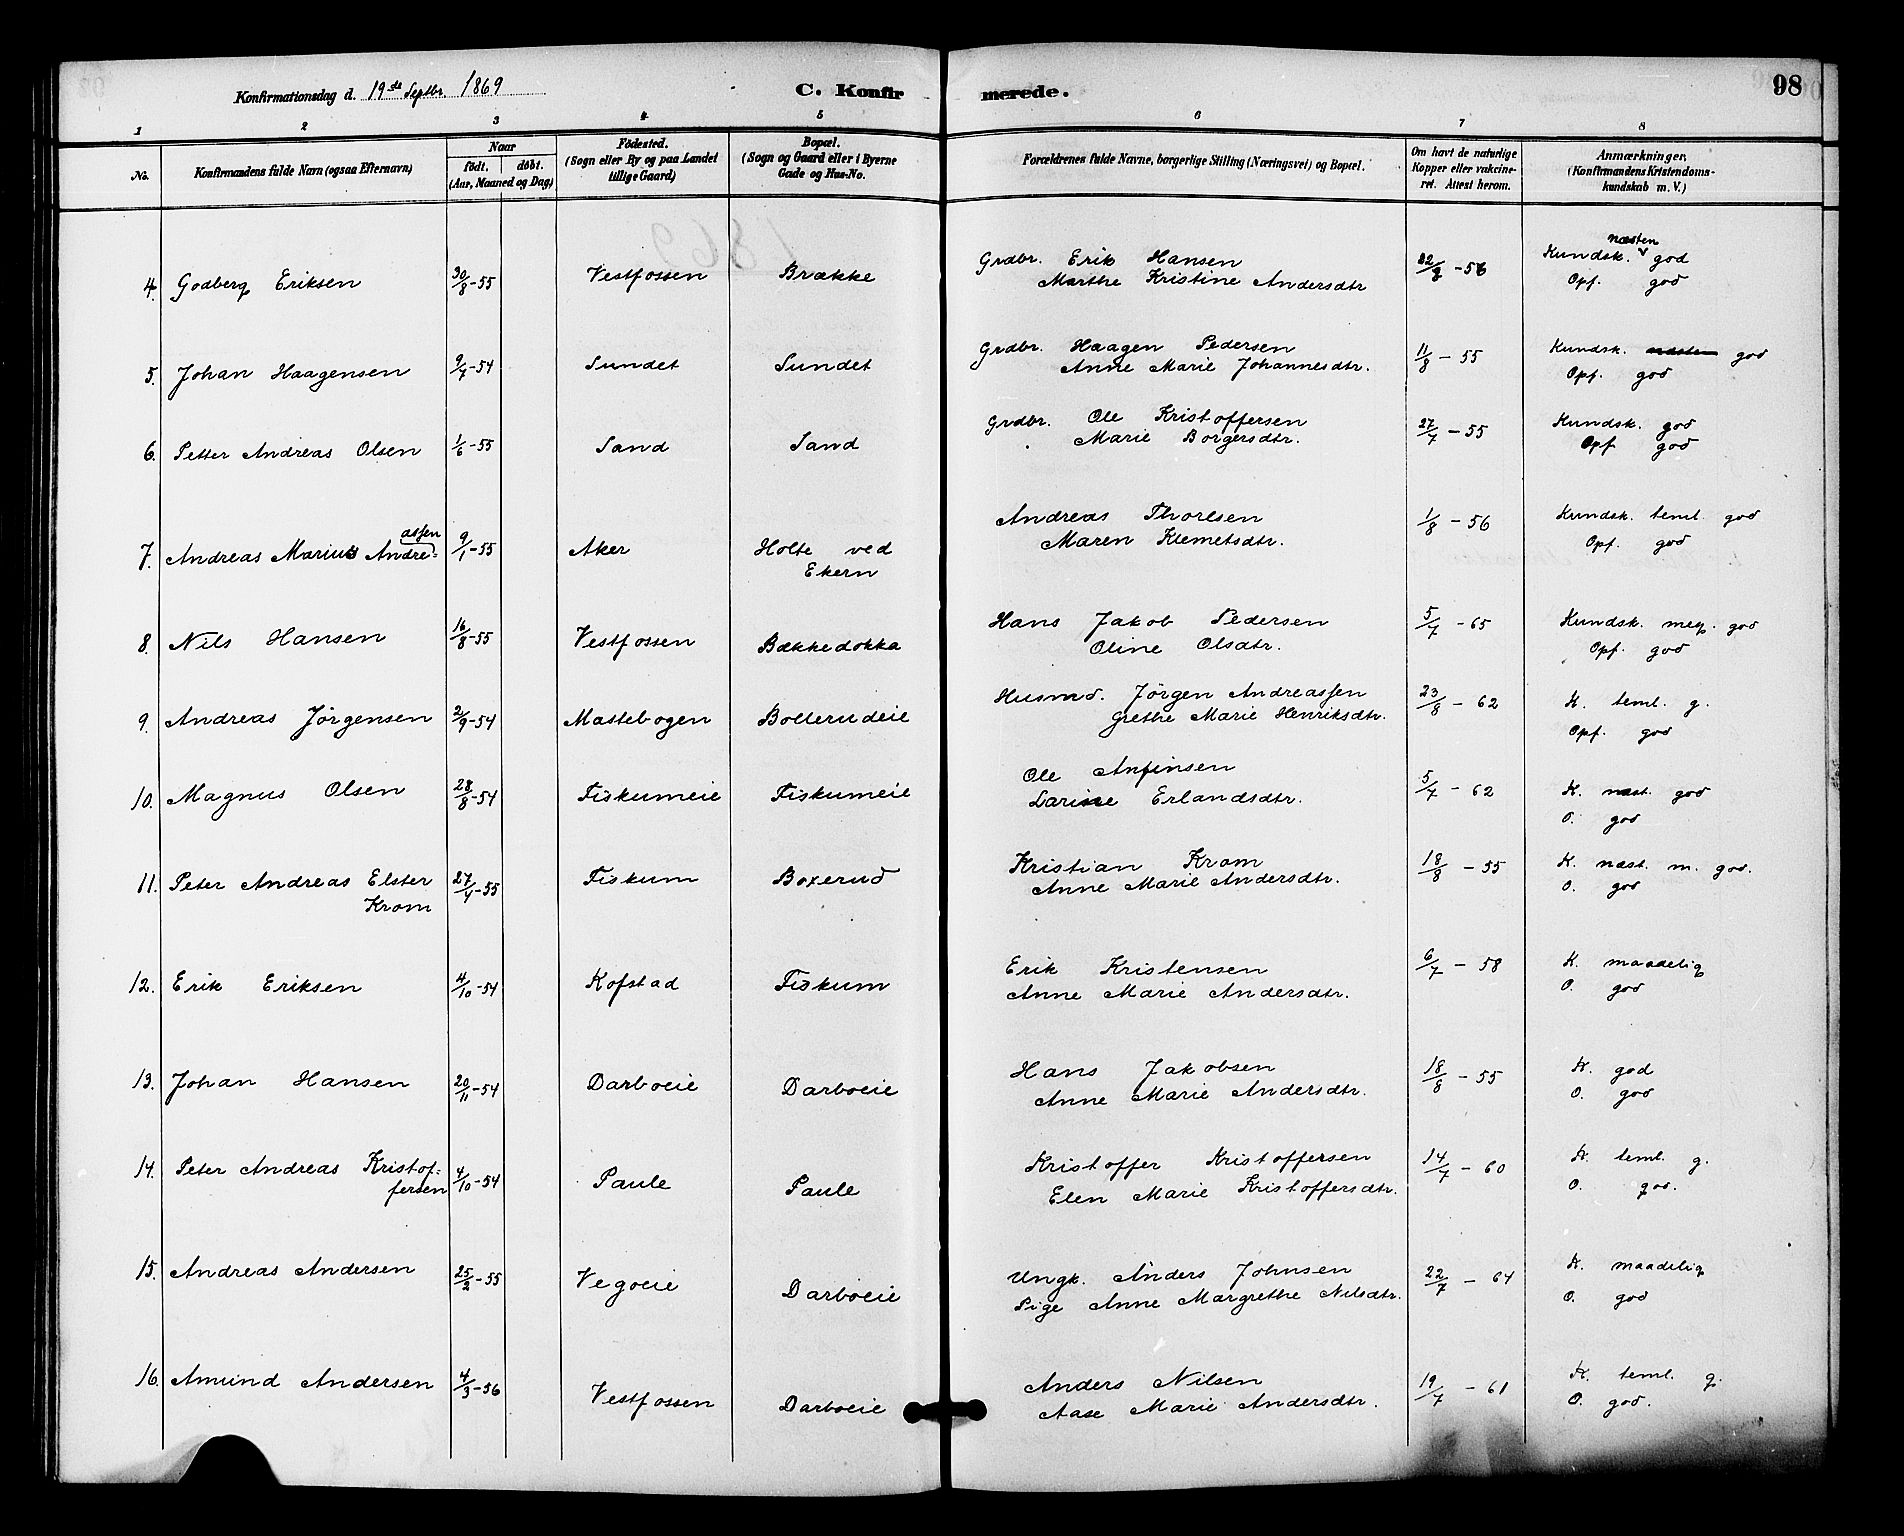 Konfirmationsdag d. 19de Septbr. 1869
C. Konfir merede.
98
1 2 3 4 5 6 7 8
No.
Konfirmandens fulde Navn (ogsaa Efternavn)
Naar
födt. döbt.
(Aar, Maaned og Dag)
Födested.
(Sogn eller By og paa Landet
tillige Gaard)
Bopæl.
(Sogn og Gaard eller i Byerne
Gade og Hus-No.
Forældrenes fulde Navne, borgerlige Stilling (Næringsvei) og Bopæl.
Om havt de naturlige
Kopper eller vakcine-
ret. Attest herom.
Anmærkninger.
(Konfirmandens Kristendoms-
kundskab m. V.)
4. Godberg Eriksen 30/8-55 Vestfossen Brække Grdbr. Erik Hansen 22/8-56 Kundsk. næsten god
Marthe Kristine Andersdtr Opf. god
5. Johan Haagensen 9/7-54 Sundet Sundet Grdbr. Haagen Pedersen 11/8-55 Kundsk. næsten god
Anne Marie Johannesdtr. Opf. god
6. Petter Andreas Olsen 1/6-55 Sand Sand Grdbr. Ole Kristoffersen 27/7-55 Kundsk. god
Marie Borgersdtr. Opf god
7. Andreas Marius Andre- 9/1-55 Aker Holte ved Andreas Thorlsen 1/8-56 Kundsk. teml. god
assen Ekern Maren Klemetsdtr. Opf. god
8. Nils Hansen 16/8-55 Vestfossen Bækkedokka Hans Jakob Pedersen 5/7-65 Kundsk. meg. god
Oline Olsdtr. Opf. god
9. Andreas Jörgensen 2/9-54 Mastebogen Bollerudeie Husmd. Jörgen Andreassen 23/8-62 K. teml. g.
Grethe Marie Henriksdtr. Opf. god
10. Magnus Olsen 28/8-54 Fiskumeie Fiskumeie Ole Anfinsen 5/7-62 K. næst. god
Larine Erlandsdtr. O. god
11. Peter Andreas Elster 27/4-55 Fiskum Boxerud Kristian Krom 18/8-55 K. næst. m. god.
Krom Anne Marie Andersdtr. O. god
12. Erik Eriksen 4/10-54 Kofstad Fiskum Erik Kristensen 6/7-58 K. maadelig
Anne Marie Andersdtr. O. god
13. Johan Hansen 20/11-54 Darboeie Darboeie Hans Jakobsen 18/8-55 K. god
Anne Marie Andersdtr. O. god
14. Peter Andreas Kristof- 4/10-54 Paule Paule Kristoffer Kristoffersen 14/7-60 K. teml. g.
fersen Elen Marie Kristoffersdtr. O. god.
15. Andreas Andersen 25/2-55 Vegoeie Darboeie Ungk. Anders Johnsen 22/7-64 K. maadelig
Pige Anne Margrethe Nilsdtr. O. god
16. Amund Andersen 4/3-56 Vestfossen Darboeie Anders Nilsen 19/7-61 K. teml. g.
Aase Marie Andersdtr. O. god.